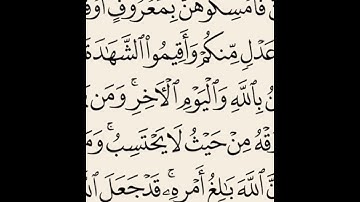 فَأَمْسِكُوهُنَّ بِمَعْرُوفٍ أَوْ
عَدْلٍ مِّنكُمْ وَأَقِيمُوا۟ ٱلشَّهَـٰدَةَ
بِٱللَّهِ وَٱلْيَوْمِ ٱلْـَٔاخِرِ ۚ وَمَن
مِنْ حَيْثُ لَا يَحْتَسِبُ ۚ
ٱللَّهَ بَـٰلِغُ أَمْرِهِۦ ۚ قَدْ جَعَلَ